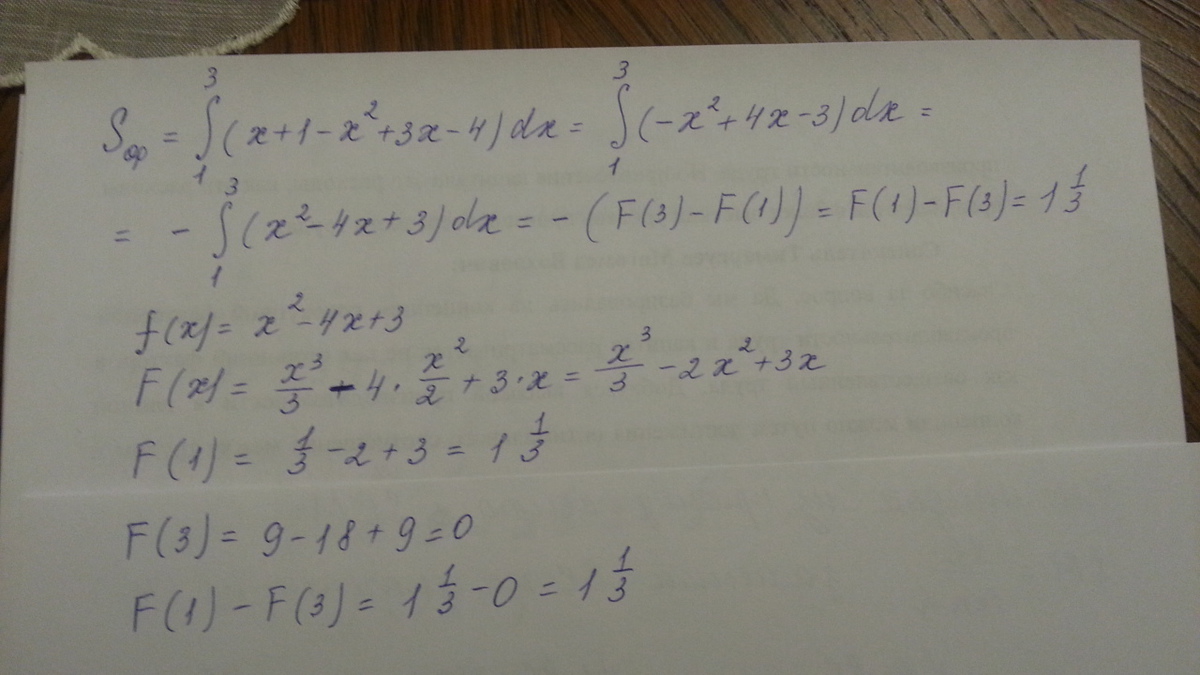 Sфр = ∫₁³ (x+1-x²+3x-4) dx = ∫₁³ (-x²+4x-3) dx =
= - ∫₁³ (x²-4x+3) dx = - (F(3)-F(1)) = F(1)-F(3) = 1 1/3
f(x) = x²-4x+3
F(x) = x³/3 - 4·x²/2 + 3·x = x³/3 - 2x² + 3x
F(1) = 1/3 - 2 + 3 = 1 1/3
F(3) = 9-18+9=0
F(1) - F(3) = 1 1/3 - 0 = 1 1/3